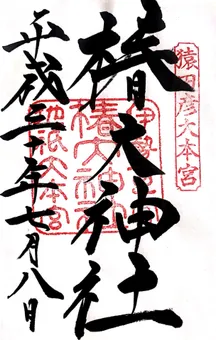 猿田彦大本宮
椿大神社
平成三十年七月八日
伊勢一宮
椿大神社
地祇大本宮